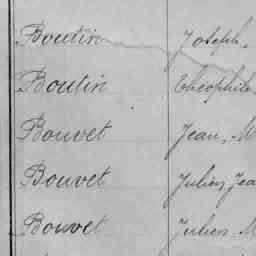 Boutin Joseph,
Boutin Théophile
Bouvet Jean, M
Bouvet Julien, Jea
Bouvet Julien, M